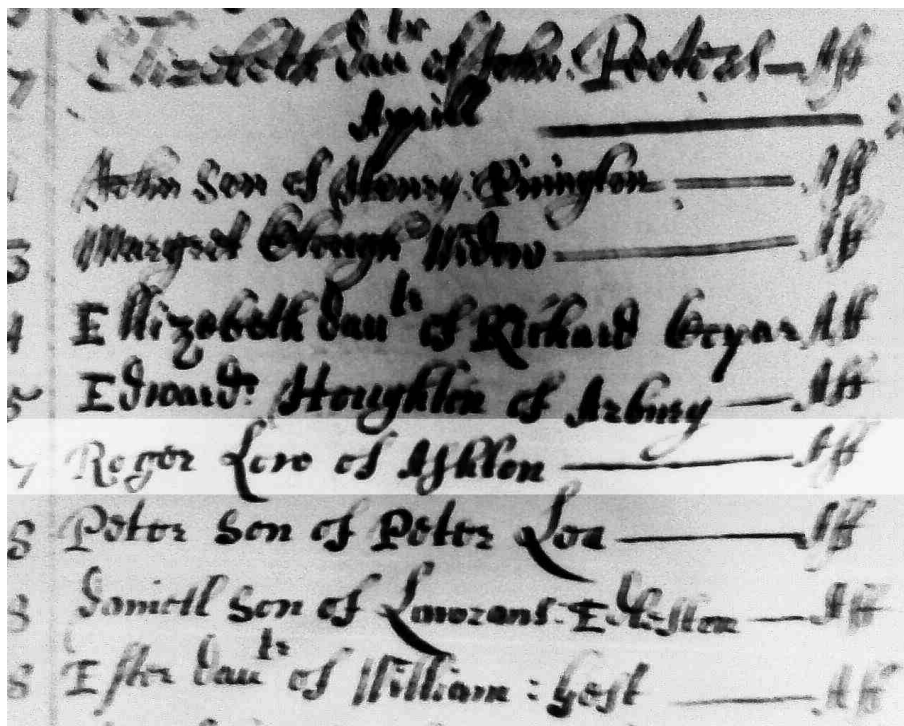 7 Elizabeth dau^tr of John Peeters — Aff
Aprill
John Son of Henry: Pinington — Aff
3 Margret Clough Widow — Aff
4 Ellizabeth dau^tr of Richard Cryar Aff
5 Edward: Houghton of Arbury — Aff
7 Roger Low of Ashton — Aff
8 Peter Son of Peter Loa — Aff
8 daniell Son of Lawrans: Ecleston — Aff
8 Ester dau^tr of William: Gest — Aff